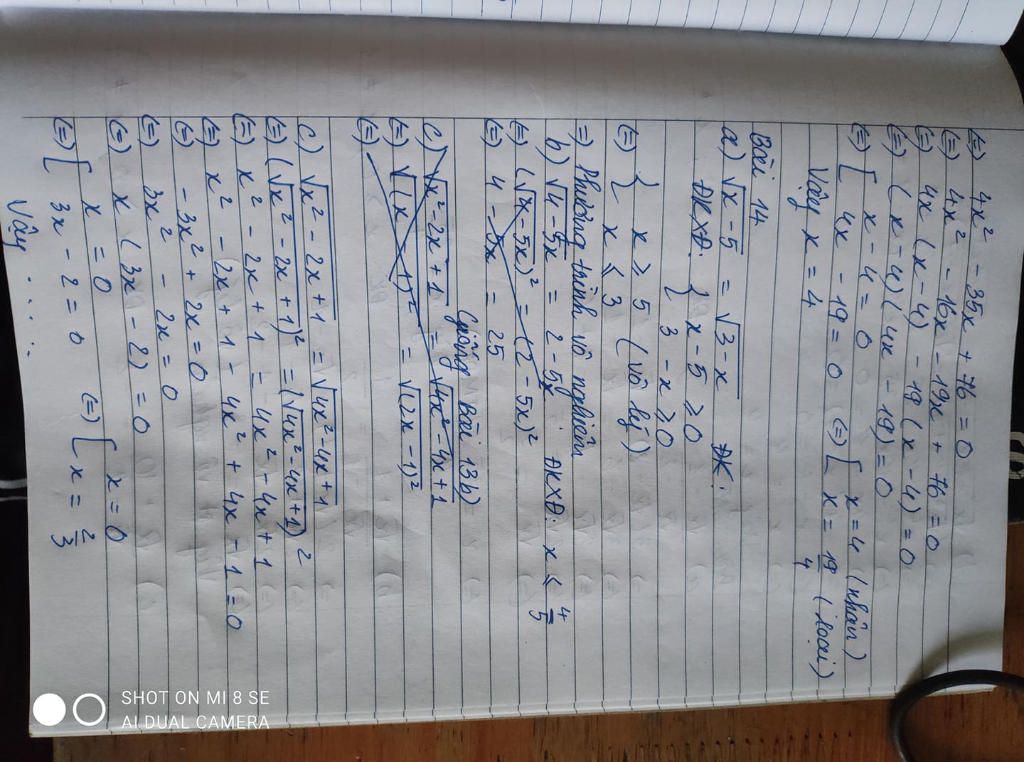 (=) 4x² - 35x + 76 = 0
(=) 4x² - 16x - 19x + 76 = 0
(=) 4x (x - 4) - 19 (x - 4) = 0
(=) (x - 4) (4x - 19) = 0
(=) [ x - 4 = 0 (=) [ x = 4 (nhận)
4x - 19 = 0 x = 19/4 (loại)
Vậy x = 4
Bài 14
a) √(x - 5) = √(3 - x) ĐK:
ĐKXĐ: { x - 5 ≥ 0
3 - x ≥ 0
(=) { x ≥ 5 (vô lý)
x ≤ 3
=) Phương trình vô nghiệm
b) √(4 - 5x) = 2 - 5x ĐKXĐ: x ≤ 4/5
(=) (√(4 - 5x))² = (2 - 5x)²
(=) 4 - 5x = 25
Giống Bài 13b)
c) √(x² - 2x + 1) = √(4x² - 4x + 1)
(=) √(x - 1)² = √(2x - 1)²
(=)
c) √(x² - 2x + 1) = √(4x² - 4x + 1)
(=) (√(x² - 2x + 1))² = (√(4x² - 4x + 1))²
(=) x² - 2x + 1 = 4x² - 4x + 1
(=) x² - 2x + 1 - 4x² + 4x - 1 = 0
(=) - 3x² + 2x = 0
(=) 3x² - 2x = 0
(=) x (3x - 2) = 0
(=) [ x = 0 (=) [ x = 0
3x - 2 = 0 x = 2/3
Vậy ....
SHOT ON MI 8 SE
AI DUAL CAMERA